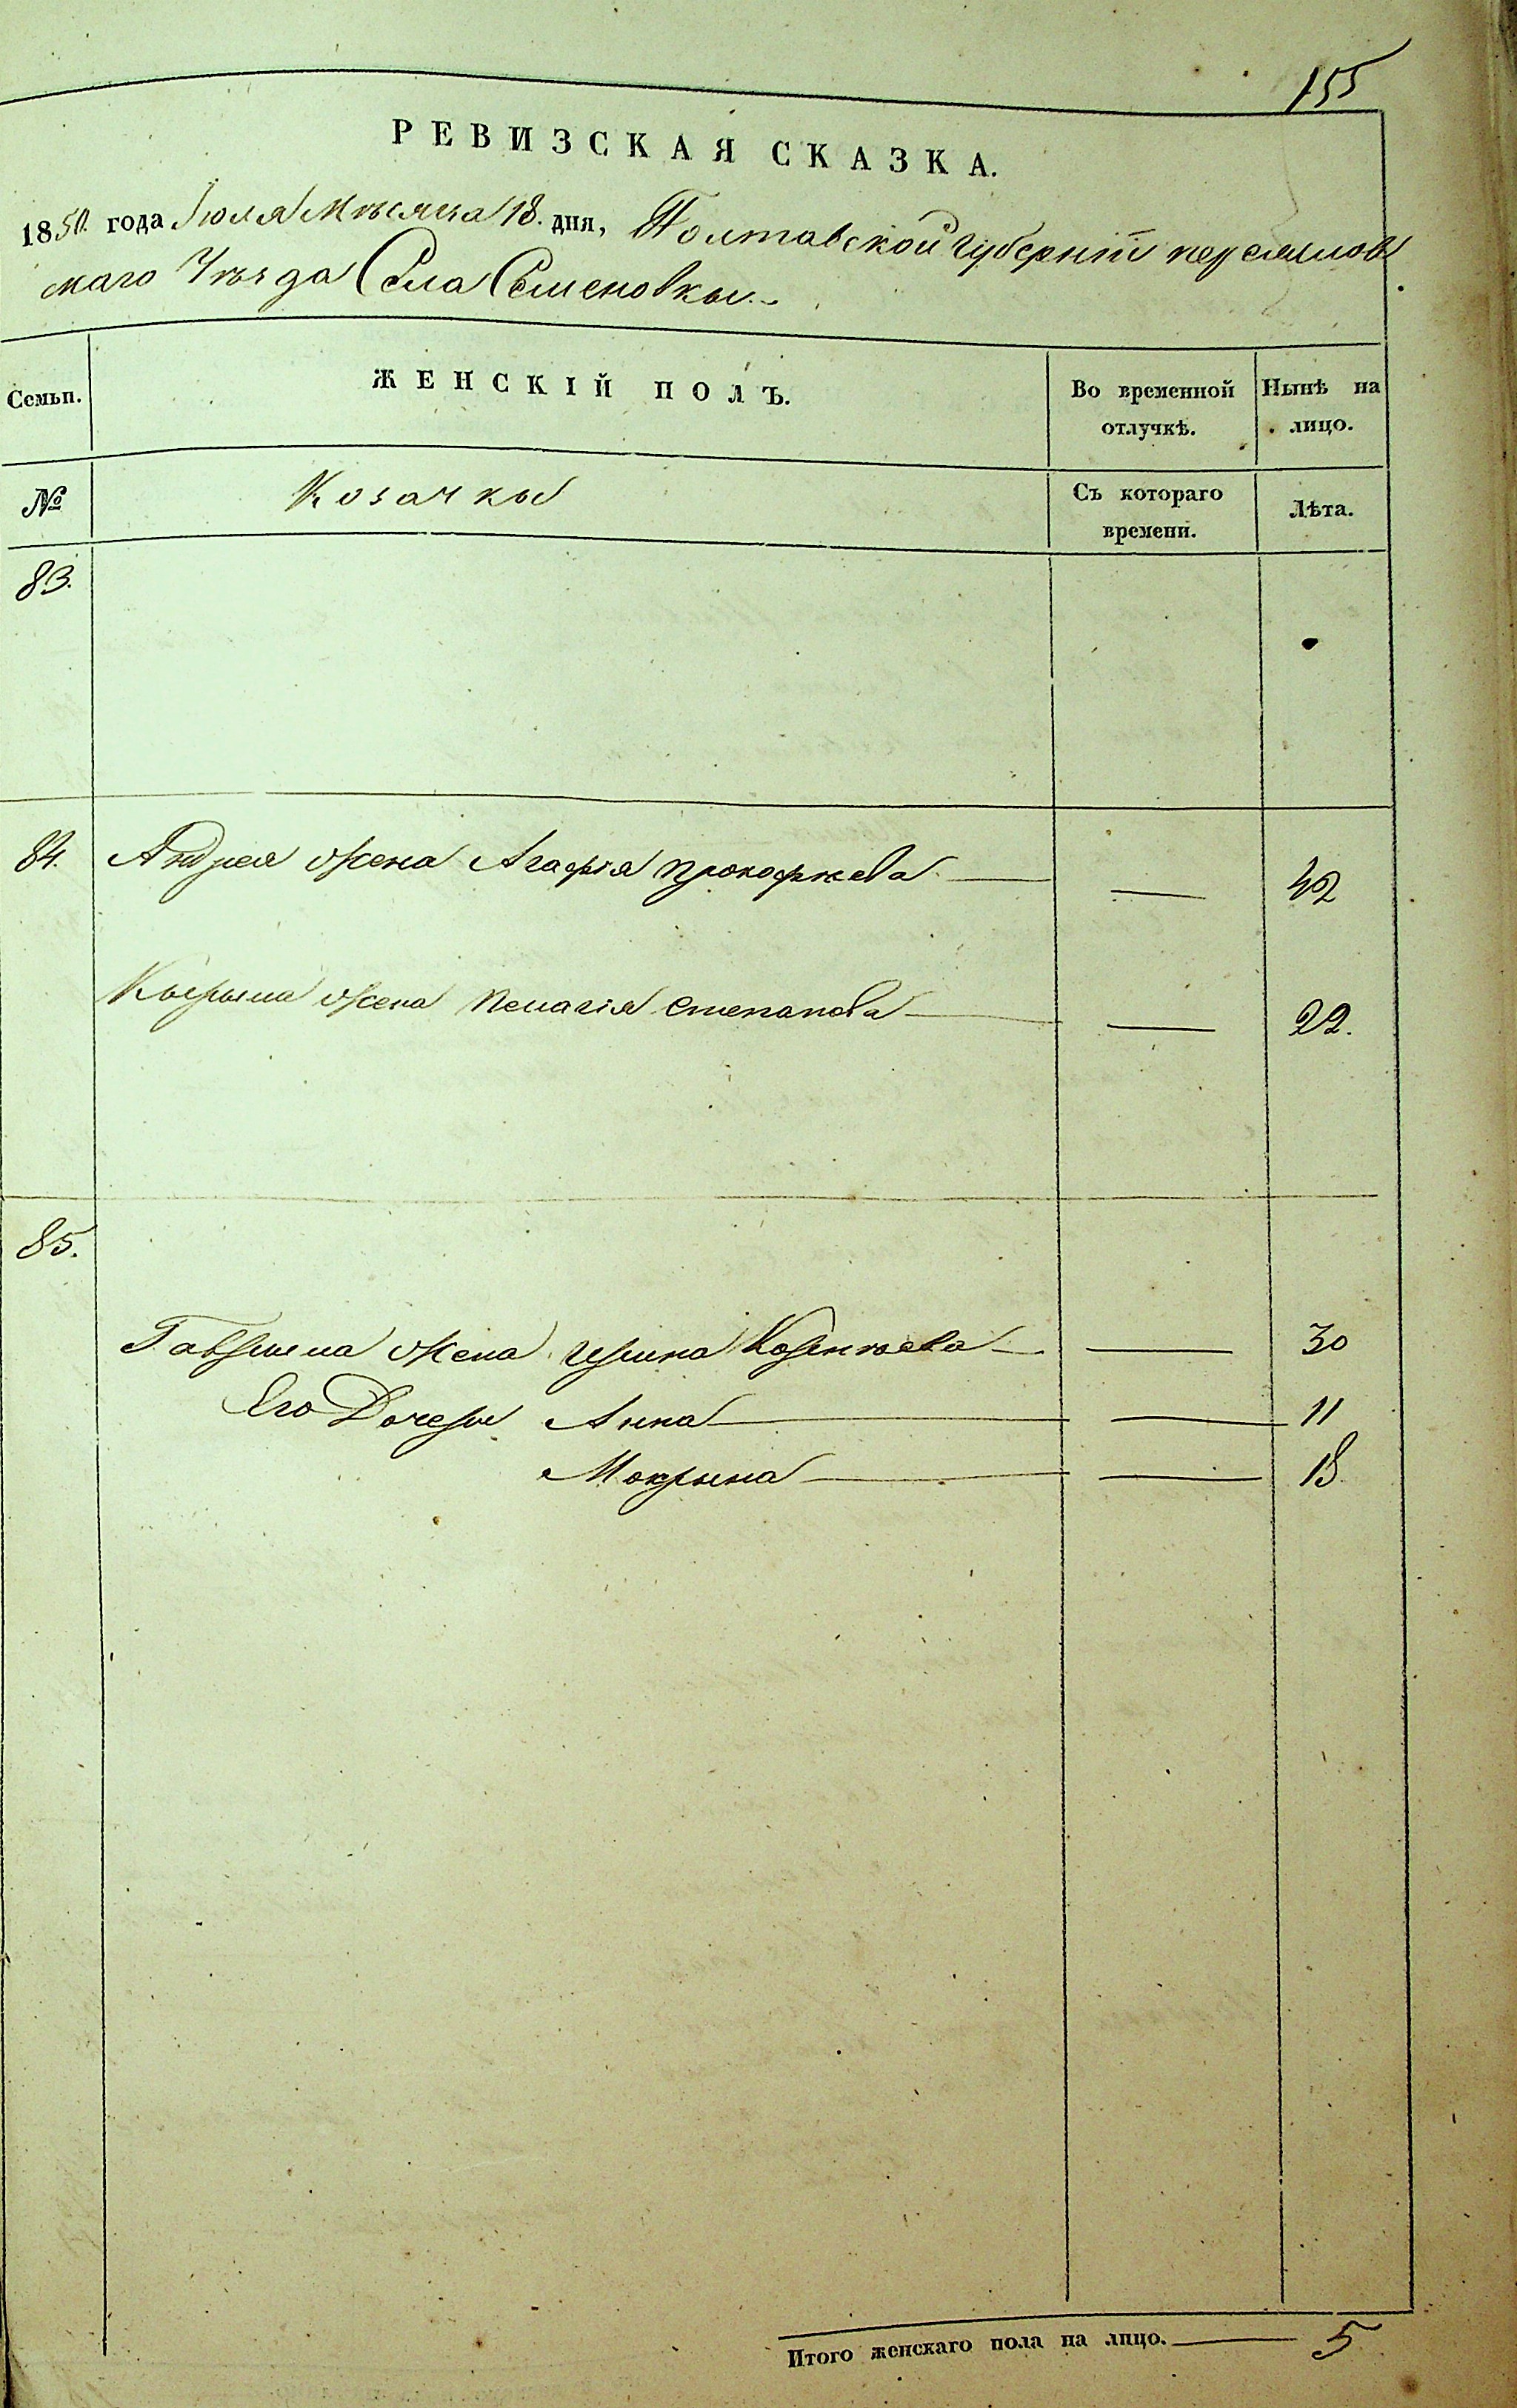 155
РЕВИЗСКАЯ СКАЗКА.
1850. года Іюля Мѣсяца 18. дня, Полтавской губерніи переяслов
скаго Уѣзда Села Семеновкы.
Семьи. ЖЕНСКІЙ ПОЛЪ. Во временной отлучкѣ. Нынѣ на лицо.
№ Козачкы Съ котораго времени. Лѣта.
83.
84. Андрея жена Агафія прокофьева — — 42
Кырыла жена пелагія степанова — — 22.
85.
Гаврыла жена Ирина Корніева — — 30
Его Дочеры Анна — — 11
Мокрына — — 18
Итого женскаго пола на лицо. — 5